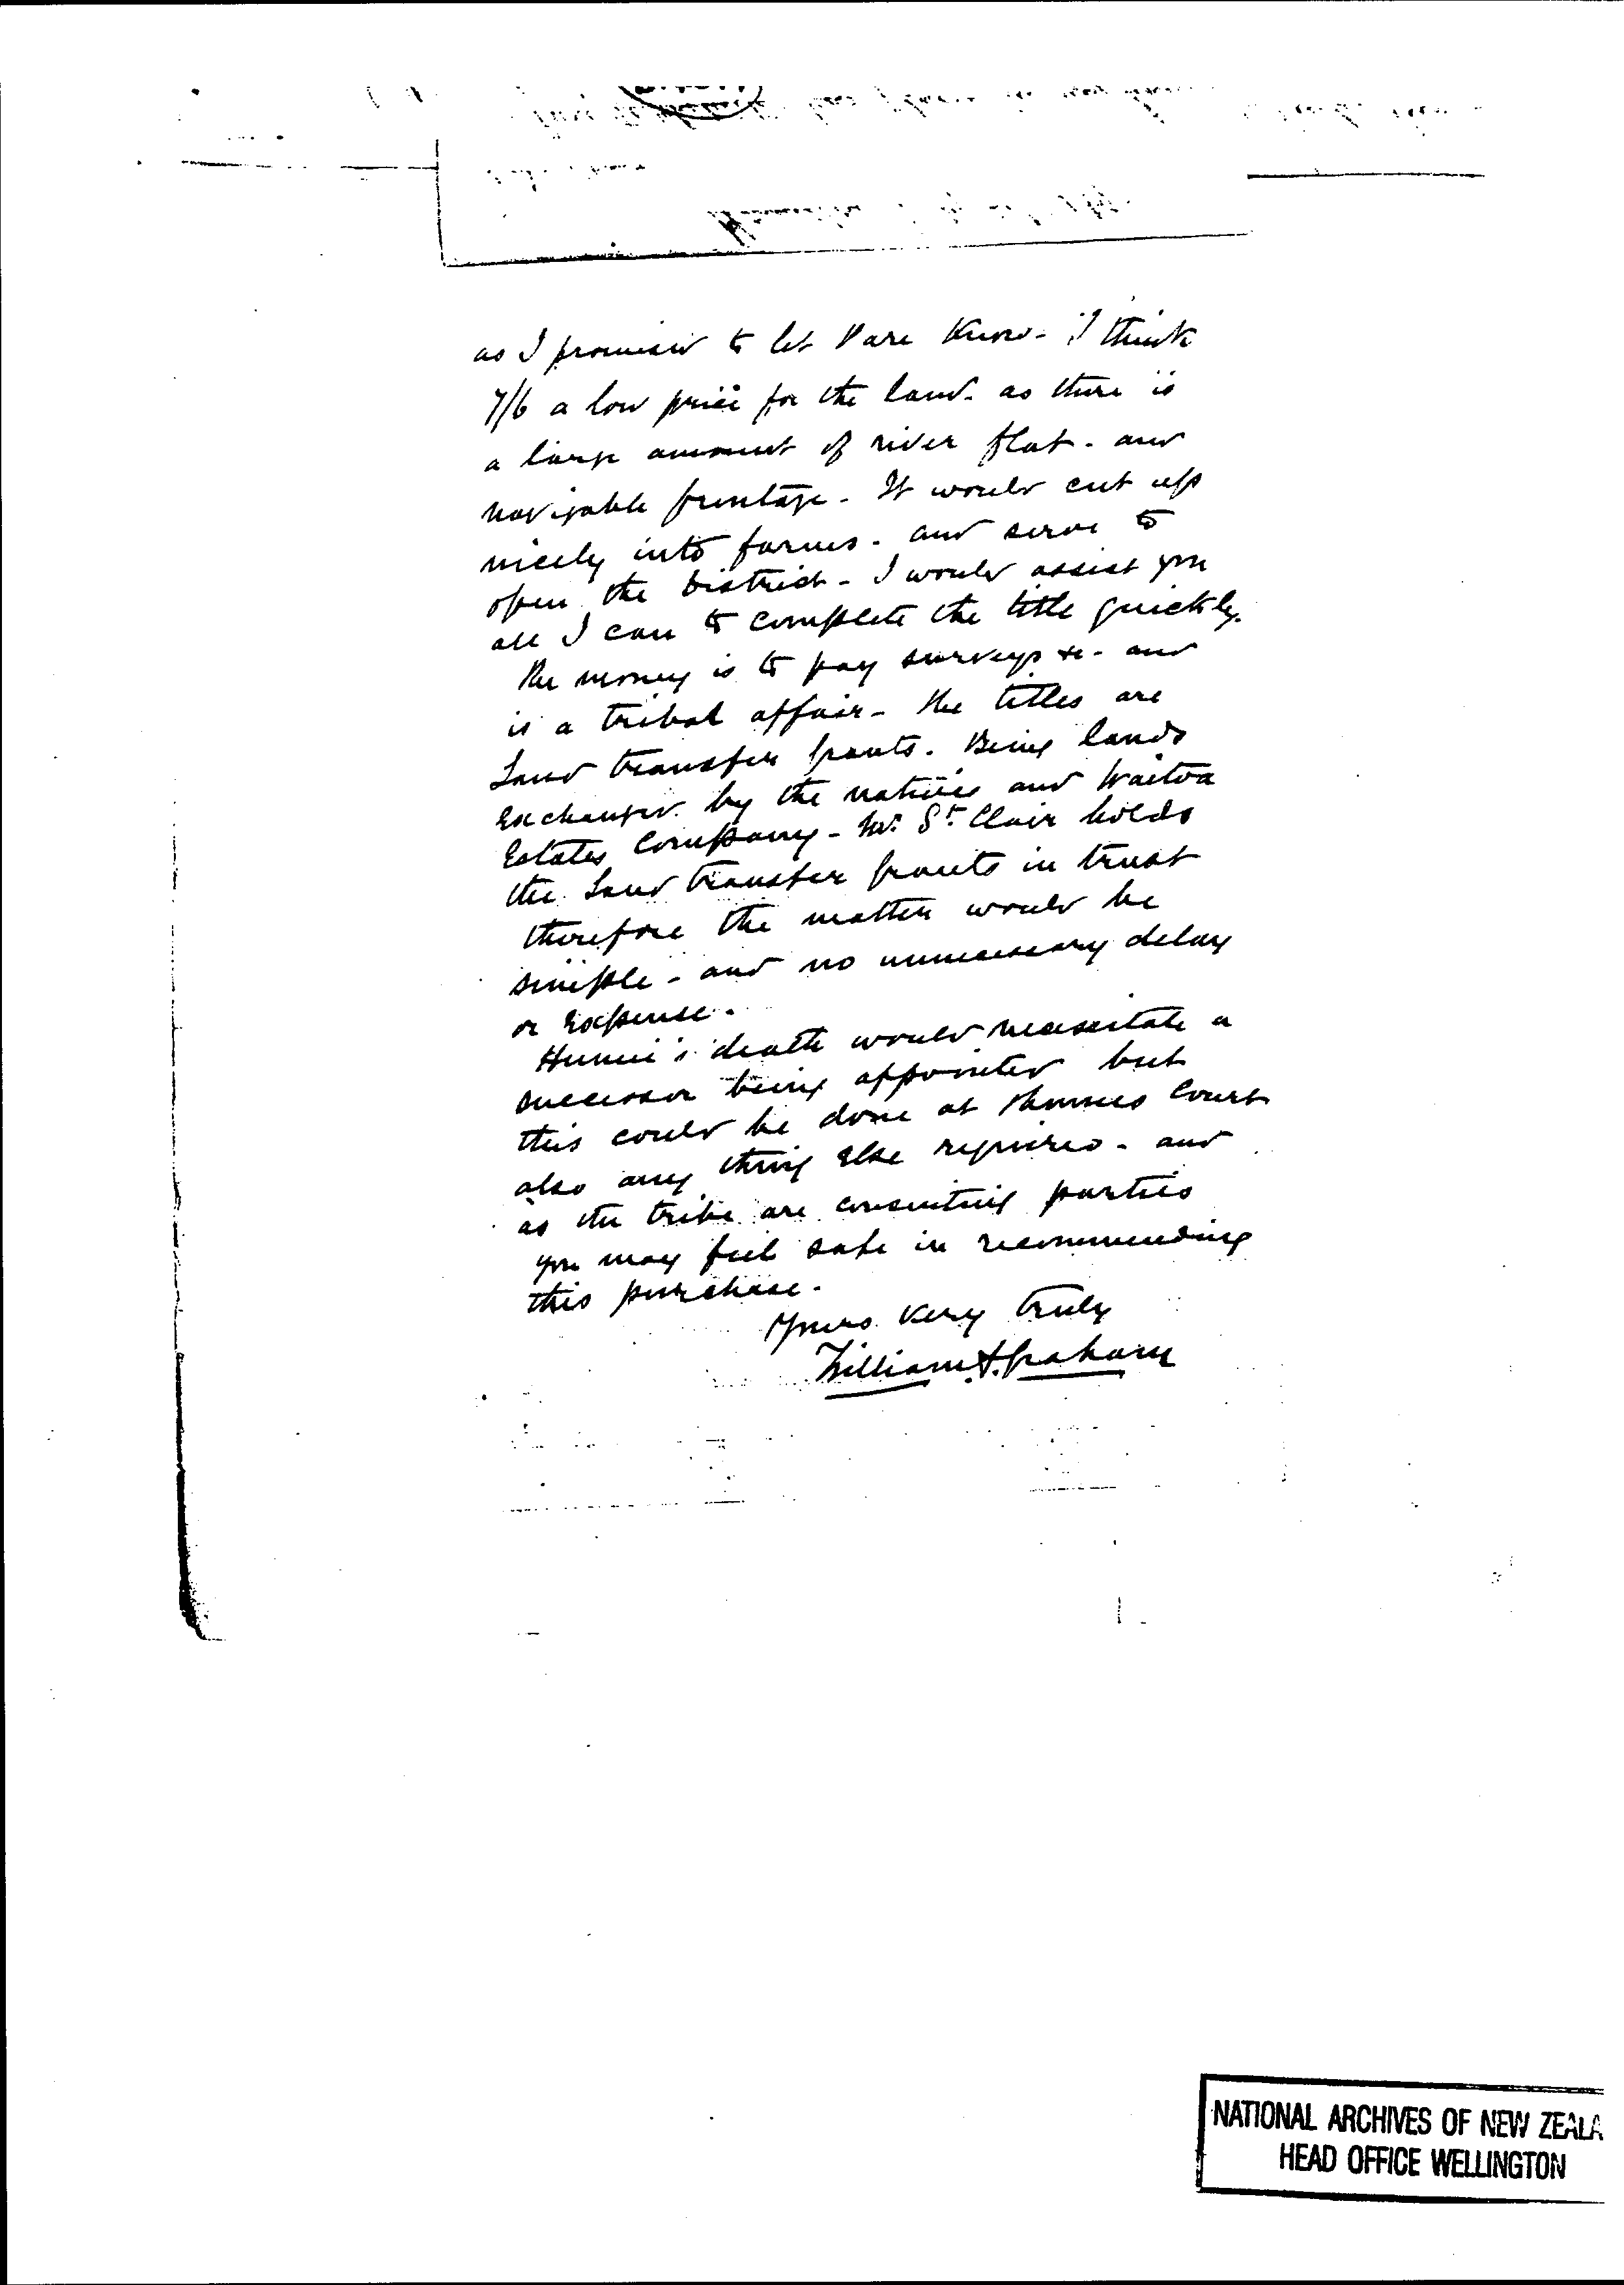 as I promised to let Pare Know - I think
7/6 a low price for the land - as there is
a large amount of river flat - and
navigable frontage - It would cut up
nicely into farms - and serve to
open the District - I would assist you
all I can to complete the title quickly.
The money is to pay surveys &c - and
is a tribal affair - The titles are
Land transfer grants. Being lands
Exchanged by the natives and Waitoa
Estates Company - Mr. St. Clair holds
the Land transfer grants in trust
therefore the matter would be
simple - and no unnecessary delay
or Expense.
death would necessitate a
successor being appointed but
this could be done at Thames Court
also any thing Else required - and
as the tribe are consenting parties
you may feel safe in recommending
this purchase.
Yours very truly
William A. Graham
NATIONAL ARCHIVES OF NEW ZEALA
HEAD OFFICE WELLINGTON